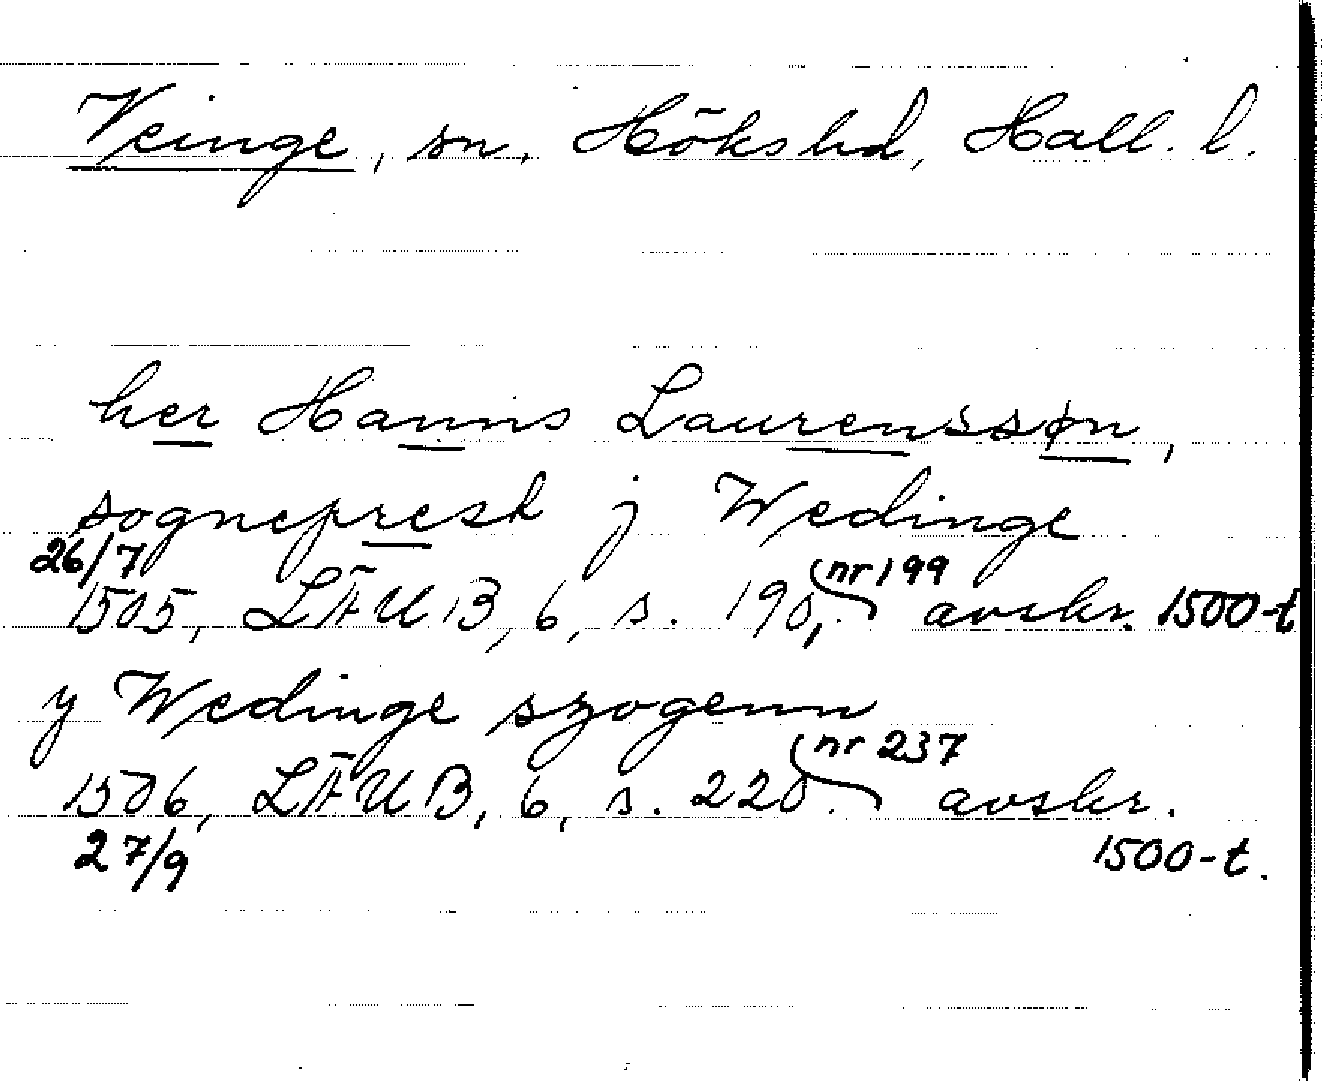 Veinge, sn, Höks hd, Hall. l.
her Hanns Laurenssøn,
sogneprest j Wedinge
26/7 1505, LÄUB, 6, s. 190, (nr 199) avskr. 1500-t
y Wedinge szogenn
1506, LÄUB, 6, s. 220. (nr 237) avskr.
27/9 1500-t.